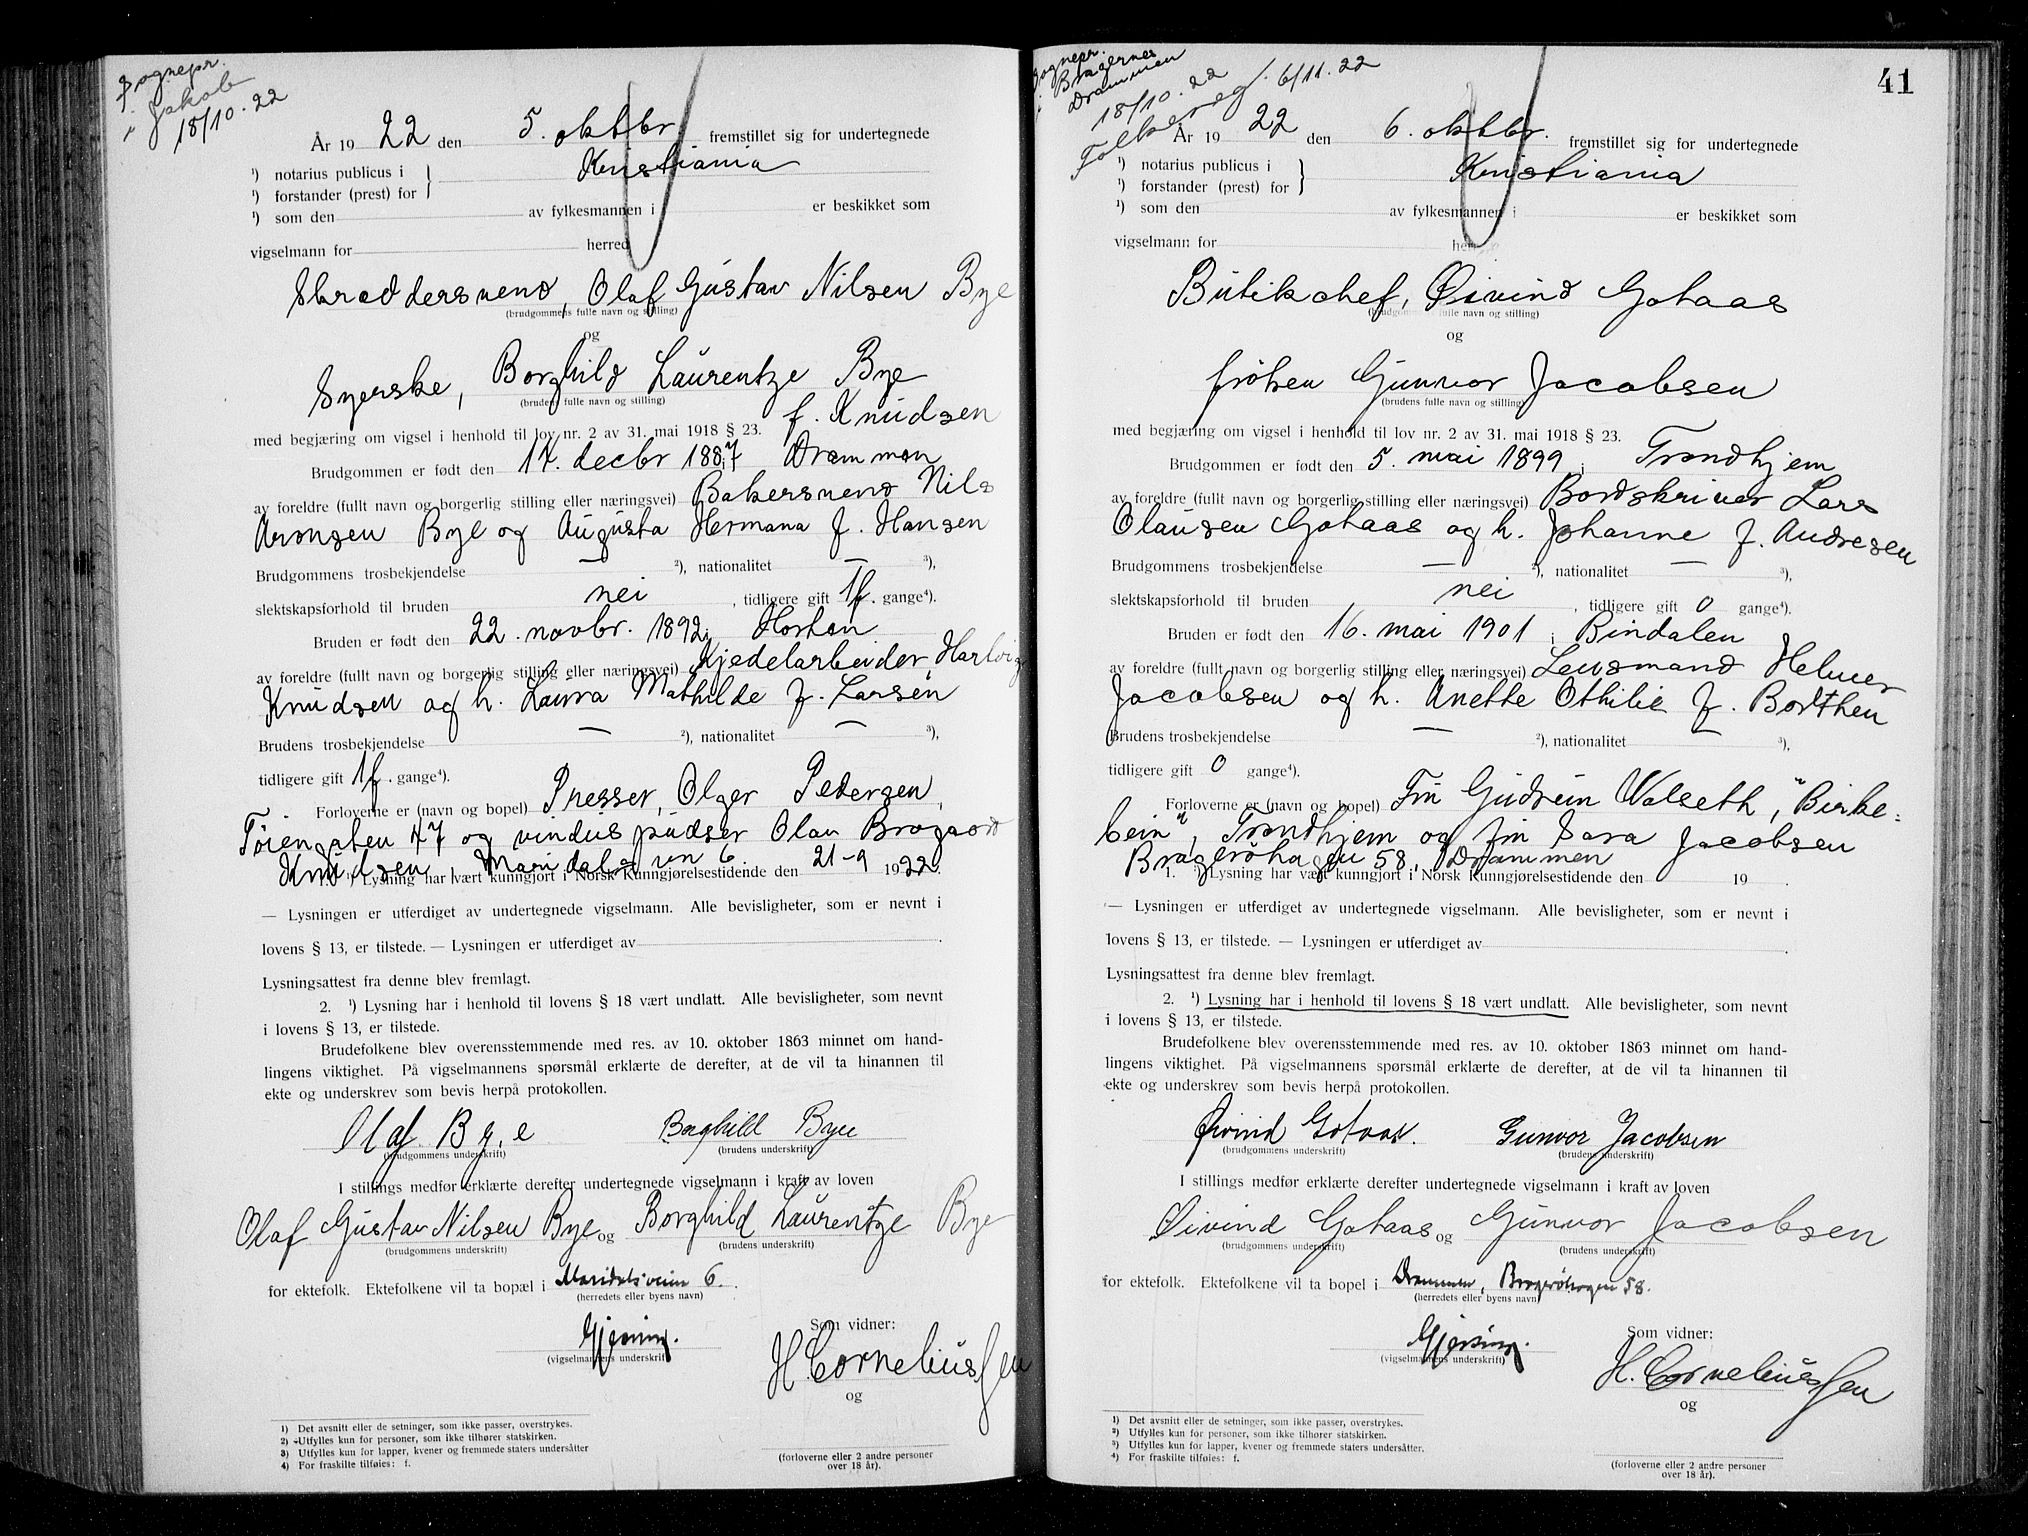 Sognepr.
i Jakob
18/10. 22
År 1922 den 5. oktbr. fremstillet sig for undertegnede
¹) notarius publicus i
¹) forstander (prest) for } Kristiania
¹) som den av fylkesmannen i er beskikket som
vigselmann for herred
Skræddersvend, Olaf Gustav Nilsen Bye
(brudgommens fulle navn og stilling)
og
Syerske, Borghild Laurentze Bye
(brudens fulle navn og stilling)
f. Knudsen
med begjæring om vigsel i henhold til lov nr. 2 av 31. mai 1918 § 23.
Brudgommen er født den 17. decbr 1887 i Drammen
av foreldre (fullt navn og borgerlig stilling eller næringsvei) Bakersvend Nils
Aronsen Bye og Augusta Hermana f. Hansen
Brudgommens trosbekjendelse — ²), nationalitet — ³),
slektskapsforhold til bruden nei, tidligere gift 1f. gange⁴).
Bruden er født den 22. novbr. 1892 i Horten
av foreldre (fullt navn og borgerlig stilling eller næringsvei) Kjedelarbeider Hartvig
Knudsen og h. Laura Mathilde f. Larsen
Brudens trosbekjendelse — ²), nationalitet — ³),
tidligere gift 1f. gange⁴).
Forloverne er (navn og bopel) Presser, Olger Pedersen,
Tøiengaten 47 og vinduspudser Olav Bragaord
Knudsen, Maridalsvn 6.
1. ¹) Lysning har vært kunngjort i Norsk Kunngjørelsestidende den 21-9 1922.
— Lysningen er utferdiget av undertegnede vigselmann. Alle bevisligheter, som er nevnt i
lovens § 13, er tilstede. — Lysningen er utferdiget av .
Lysningsattest fra denne blev fremlagt.
2. ¹) Lysning har i henhold til lovens § 18 vært undlatt. Alle bevisligheter, som nevnt
i lovens § 13, er tilstede.
Brudefolkene blev overensstemmende med res. av 10. oktober 1863 minnet om hand-
lingens viktighet. På vigselmannens spørsmål erklærte de derefter, at de vil ta hinannen til
ekte og underskrev som bevis herpå protokollen.
Olaf Bye Borghild Bye
(brudgommens underskrift) (brudens underskrift)
I stillings medfør erklærte derefter undertegnede vigselmann i kraft av loven
Olaf Gustav Nilsen Bye og Borghild Laurentze Bye
(brudgommens underskrift) (brudens underskrift)
for ektefolk. Ektefolkene vil ta bopæl i Maridalsveien 6.
(herredets eller byens navn)
Gjersing. Som vidner:
(vigselmannens underskrift) H. Corneliussen
og
¹) Det avsnitt eller de setninger, som ikke passer, overstrykes.
²) Utfylles kun for personer, som ikke tilhører statskirken.
³) Utfylles kun for lapper, kvener og fremmede staters undersåtter
⁴) For fraskilte tilføies: f.
(forloverne eller 2 andre personer
over 18 år).
41
Sognepr.
i Bragernes
Drammen
18/10. 22
Folkereg. 6/11. 22
År 1922 den 6. oktbr. fremstillet sig for undertegnede
¹) notarius publicus i
¹) forstander (prest) for } Kristiania
¹) som den av fylkesmannen i er beskikket som
vigselmann for herred
Butikchef, Øivind Gotaas
(brudgommens fulle navn og stilling)
og
frøken Gunvor Jacobsen
(brudens fulle navn og stilling)
med begjæring om vigsel i henhold til lov nr. 2 av 31. mai 1918 § 23.
Brudgommen er født den 5. mai 1899 i Trondhjem
av foreldre (fullt navn og borgerlig stilling eller næringsvei) Bordskriver Lars
Olausen Gotaas og h. Johanne f. Andresen
Brudgommens trosbekjendelse — ²), nationalitet — ³),
slektskapsforhold til bruden nei, tidligere gift 0 gange⁴).
Bruden er født den 16. mai 1901 i Bindalen
av foreldre (fullt navn og borgerlig stilling eller næringsvei) Lensmand Helmer
Jacobsen og h. Anette Othilie f. Borthen
Brudens trosbekjendelse — ²), nationalitet — ³),
tidligere gift 0 gange⁴).
Forloverne er (navn og bopel) Fru Gudrun Walseth, "Birke=
bein", Trondhjem og fru Sara Jacobsen
Bragerøhagen 58, Drammen
1. ¹) Lysning har vært kunngjort i Norsk Kunngjørelsestidende den 19 .
— Lysningen er utferdiget av undertegnede vigselmann. Alle bevisligheter, som er nevnt i
lovens § 13, er tilstede. — Lysningen er utferdiget av .
Lysningsattest fra denne blev fremlagt.
2. ¹) Lysning har i henhold til lovens § 18 vært undlatt. Alle bevisligheter, som nevnt
i lovens § 13, er tilstede.
Brudefolkene blev overensstemmende med res. av 10. oktober 1863 minnet om hand-
lingens viktighet. På vigselmannens spørsmål erklærte de derefter, at de vil ta hinannen til
ekte og underskrev som bevis herpå protokollen.
Øivind Gotaas. Gunvor Jacobsen
(brudgommens underskrift) (brudens underskrift)
I stillings medfør erklærte derefter undertegnede vigselmann i kraft av loven
Øivind Gotaas og Gunvor Jacobsen
(brudgommens underskrift) (brudens underskrift)
for ektefolk. Ektefolkene vil ta bopel i Drammen, Bragerøhagen 58.
(herredets eller byens navn)
Gjersing. Som vidner:
(vigselmannens underskrift) H. Corneliussen
og
¹) Det avsnitt eller de setninger, som ikke passer, overstrykes.
²) Utfylles kun for personer, som ikke tilhører statskirken.
³) Utfylles kun for lapper, kvener og fremmede staters undersåtter.
⁴) For fraskilte tilføies: f.
(forloverne eller 2 andre personer
over 18 år).